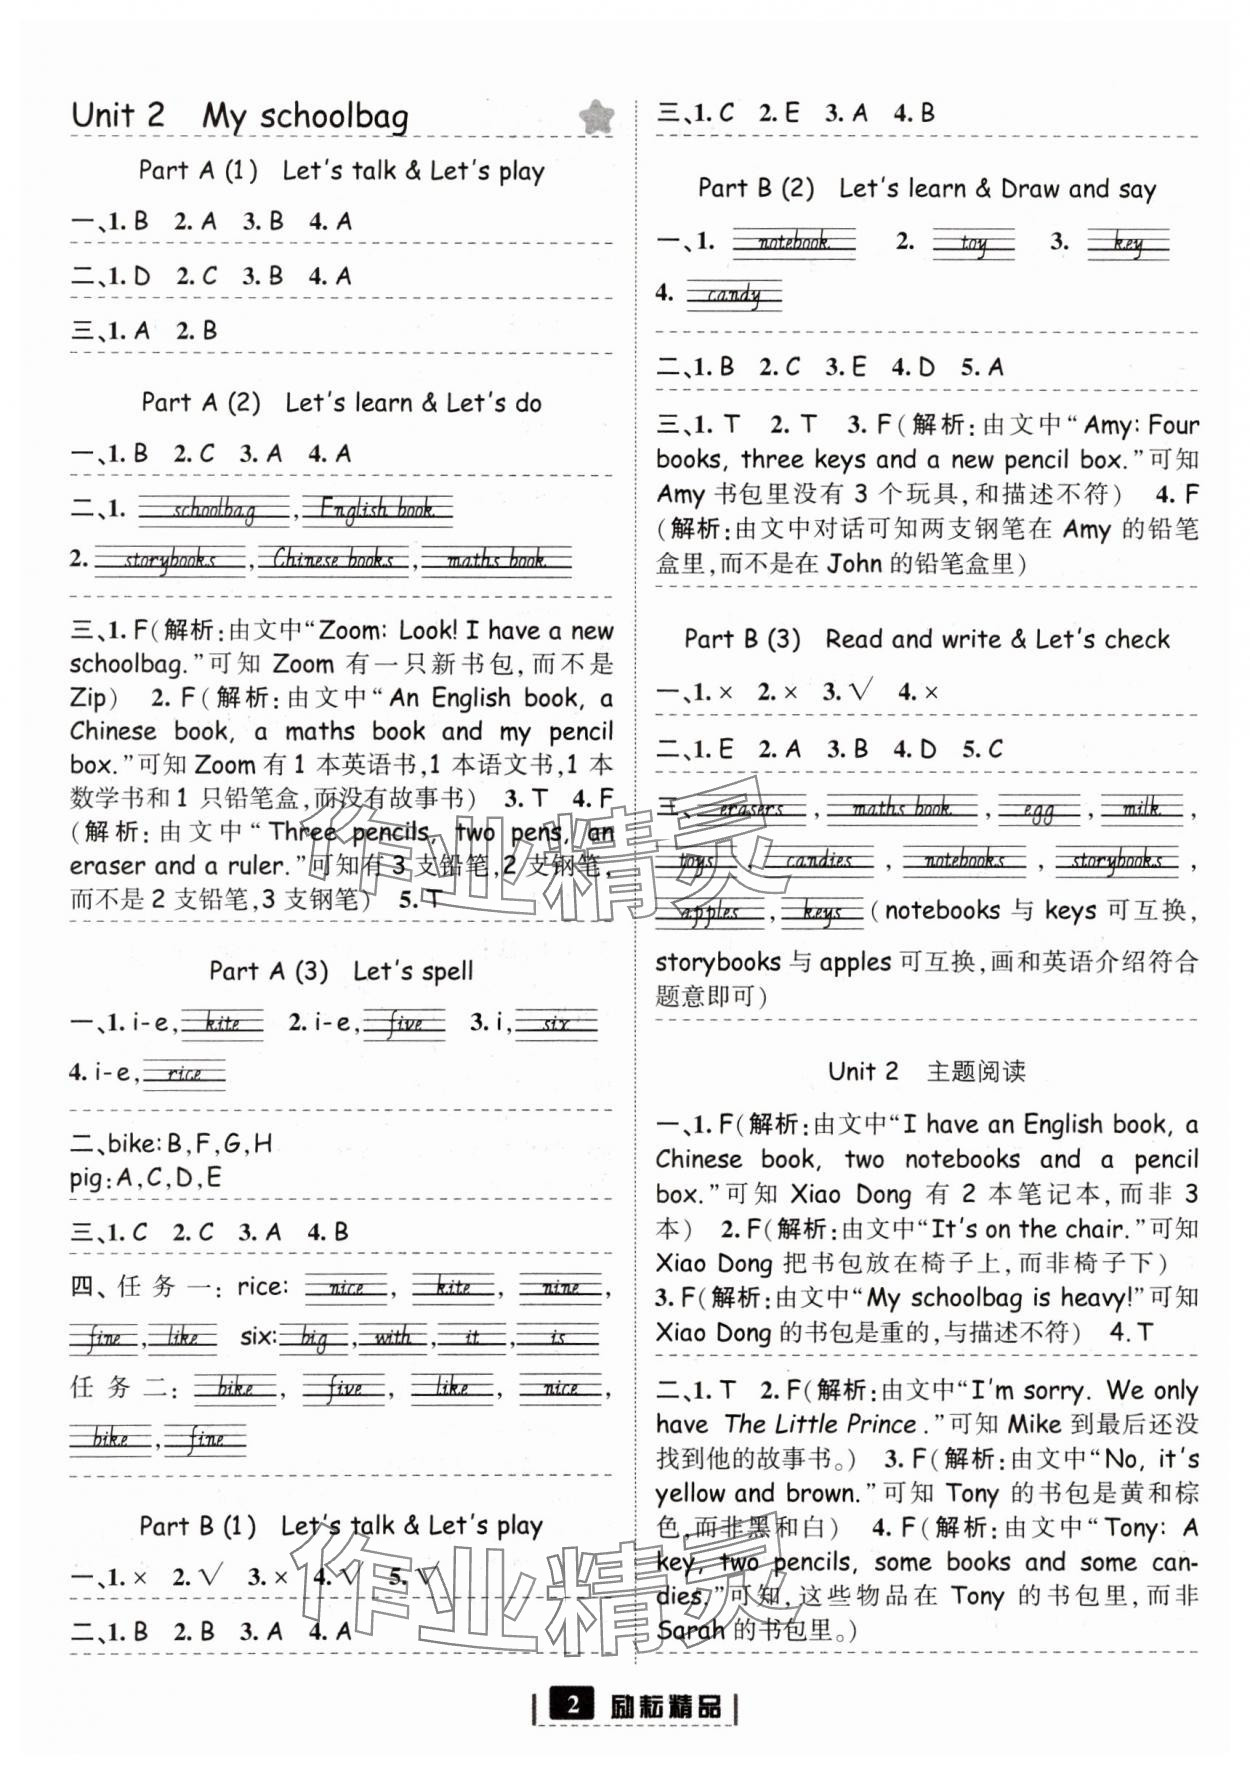 Unit 2 My schoolbag
Part A (1) Let's talk & Let's play
一、1. B 2. A 3. B 4. A
二、1. D 2. C 3. B 4. A
三、1. A 2. B
Part A (2) Let's learn & Let's do
一、1. B 2. C 3. A 4. A
二、1. schoolbag, English book
2. storybooks, Chinese books, maths book
三、1. F(解析:由文中“Zoom: Look! I have a new
schoolbag.”可知 Zoom 有一只新书包,而不是
Zip) 2. F(解析:由文中“An English book, a
Chinese book, a maths book and my pencil
box.”可知 Zoom 有 1 本英语书,1 本语文书,1 本
数学书和 1 只铅笔盒,而没有故事书) 3. T 4. F
(解析:由文中“Three pencils, two pens, an
eraser and a ruler.”可知有 3 支铅笔,2 支钢笔,
而不是 2 支铅笔,3 支钢笔) 5. T
Part A (3) Let's spell
一、1. i-e, kite 2. i-e, five 3. i, six
4. i-e, rice
二、bike: B,F,G,H
pig: A,C,D,E
三、1. C 2. C 3. A 4. B
四、任务一: rice: nice, kite, nine,
fine, like six: big, with, it, is
任务二: bike, five, like, nice,
bike, fine
Part B (1) Let's talk & Let's play
一、1. × 2. √ 3. × 4. √ 5. √
二、1. B 2. B 3. A 4. A
三、1. C 2. E 3. A 4. B
Part B (2) Let's learn & Draw and say
一、1. notebook 2. toy 3. key
4. candy
二、1. B 2. C 3. E 4. D 5. A
三、1. T 2. T 3. F(解析:由文中“Amy: Four
books, three keys and a new pencil box.”可知
Amy 书包里没有 3 个玩具,和描述不符) 4. F
(解析:由文中对话可知两支钢笔在 Amy 的铅笔
盒里,而不是在 John 的铅笔盒里)
Part B (3) Read and write & Let's check
一、1. × 2. × 3. √ 4. ×
二、1. E 2. A 3. B 4. D 5. C
三、erasers, maths book, egg, milk,
toys, candies, notebooks, storybooks,
apples, keys(notebooks 与 keys 可互换,
storybooks 与 apples 可互换,画和英语介绍符合
题意即可)
Unit 2 主题阅读
一、1. F(解析:由文中“I have an English book, a
Chinese book, two notebooks and a pencil
box.”可知 Xiao Dong 有 2 本笔记本,而非 3
本) 2. F(解析:由文中“It's on the chair.”可知
Xiao Dong 把书包放在椅子上,而非椅子下)
3. F(解析:由文中“My schoolbag is heavy!”可知
Xiao Dong 的书包是重的,与描述不符) 4. T
二、1. T 2. F(解析:由文中“I'm sorry. We only
have The Little Prince.”可知 Mike 到最后还没
找到他的故事书。) 3. F(解析:由文中“No, it's
yellow and brown.”可知 Tony 的书包是黄和棕
色,而非黑和白) 4. F(解析:由文中“Tony: A
key, two pencils, some books and some can-
dies.”可知,这些物品在 Tony 的书包里,而非
Sarah 的书包里。)
作业精灵
作业精灵
2 励耘精品